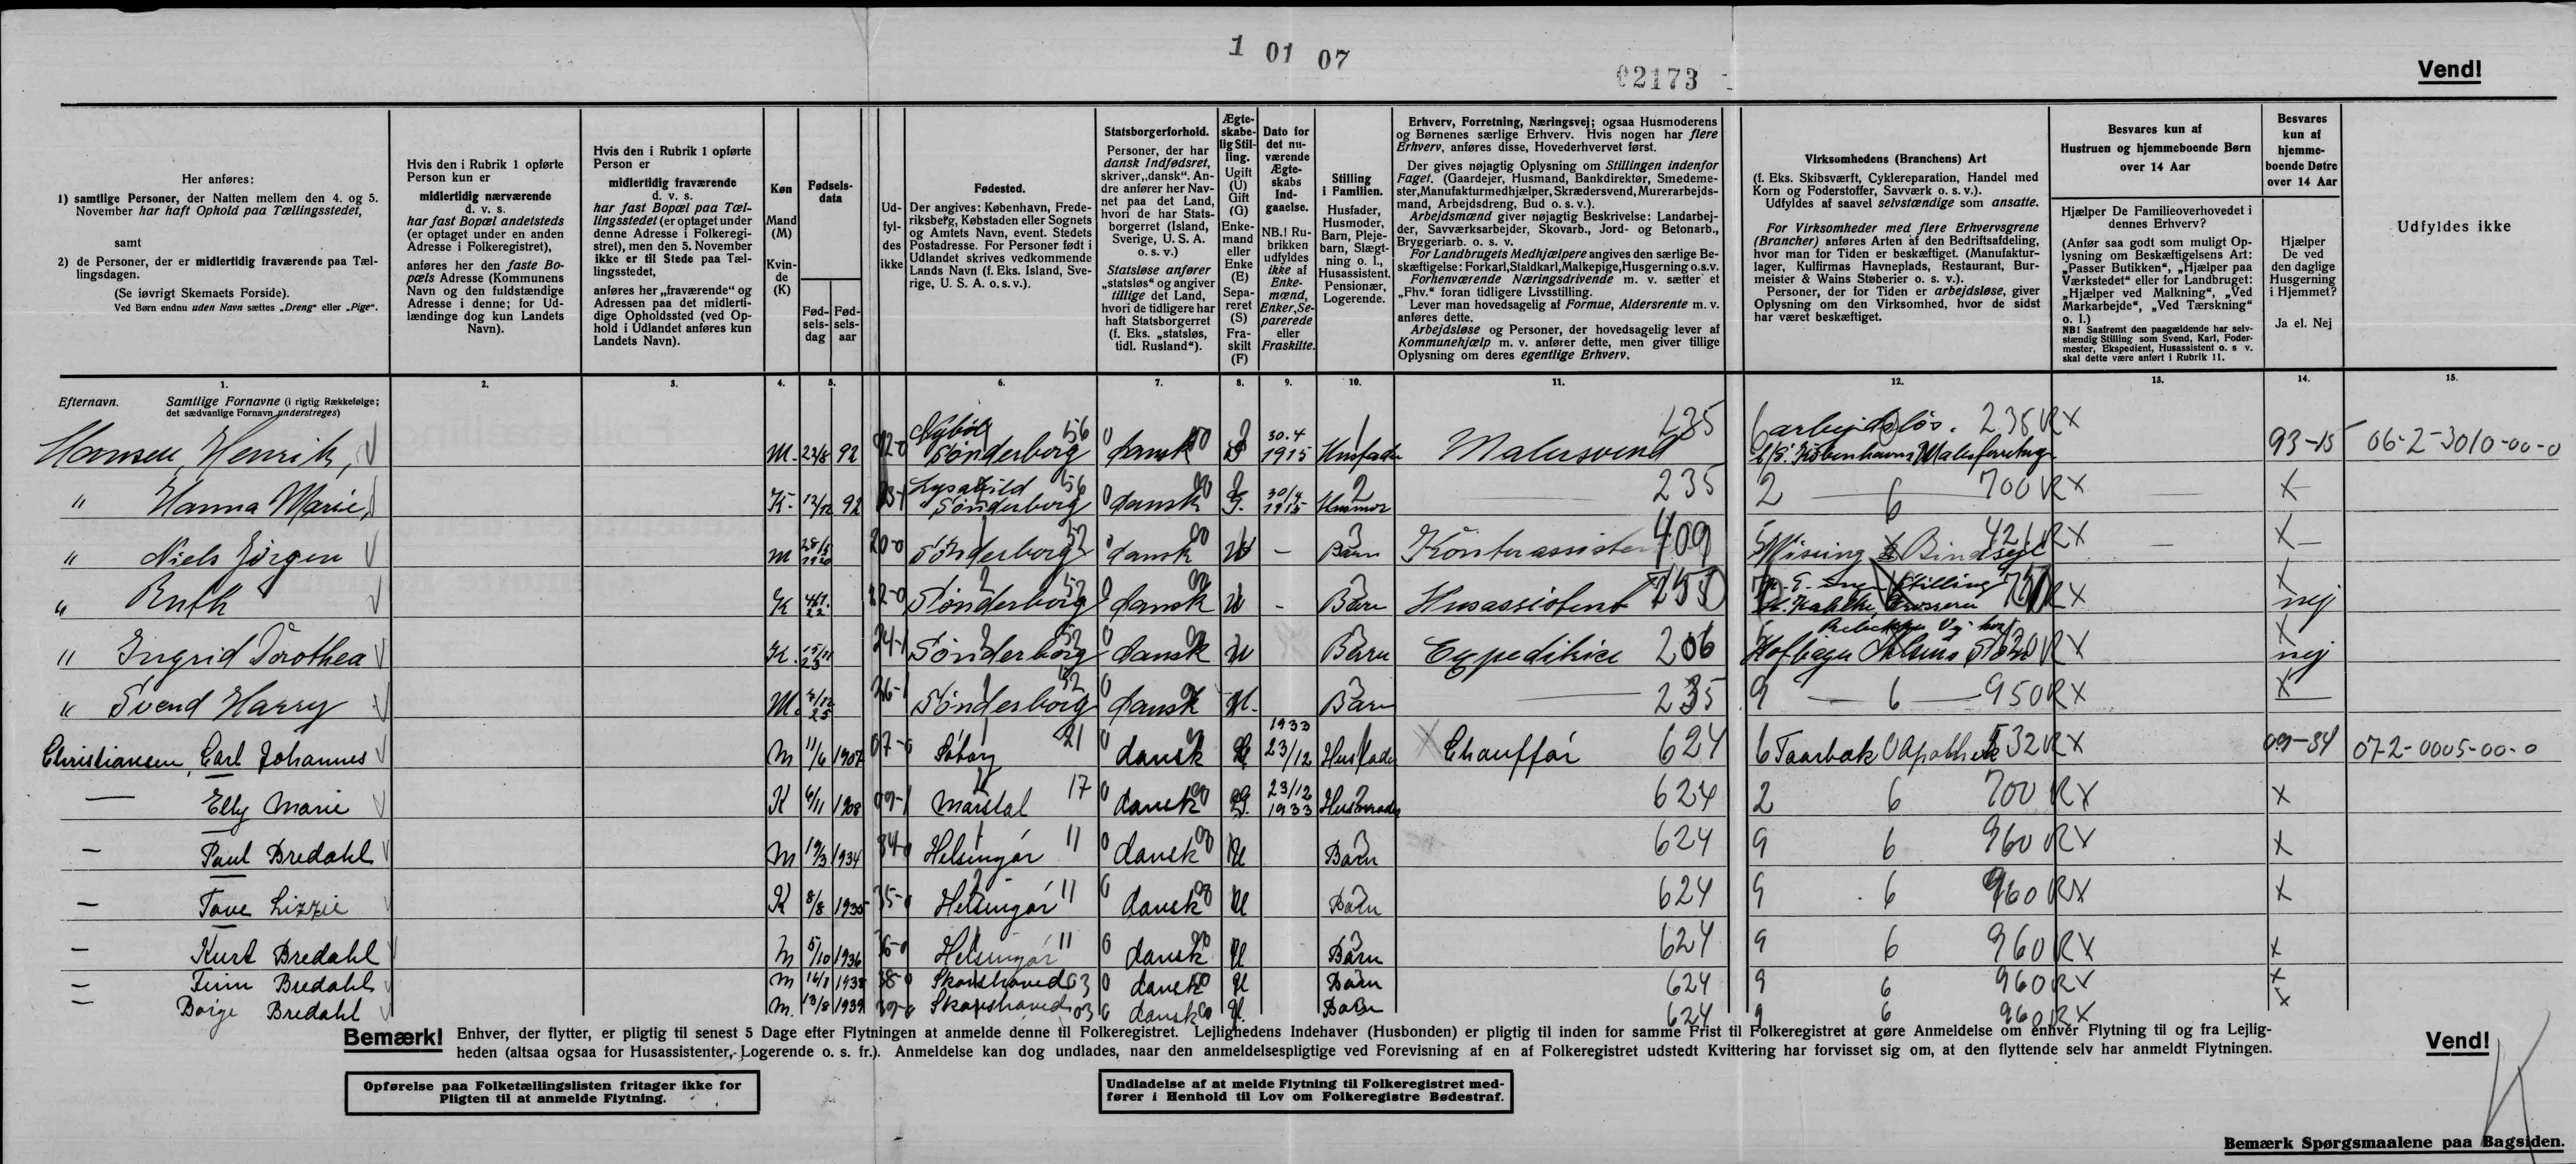 1 01 07
02173
Vend!
Her anføres:
1) samtlige Personer, der Natten mellem den 4. og 5.
November har haft Ophold paa Tællingsstedet,
samt
2) de Personer, der er midlertidig fraværende paa Tæl-
lingsdagen.
(Se iøvrigt Skemaets Forside).
Ved Børn endnu uden Navn sættes „Dreng“ eller „Pige“.
Hvis den i Rubrik 1 opførte
Person kun er
midlertidig nærværende
d. v. s.
har fast Bopæl andetsteds
(er optaget under en anden
Adresse i Folkeregistret),
anføres her den faste Bo-
pæls Adresse (Kommunens
Navn og den fuldstændige
Adresse i denne; for Ud-
lændinge dog kun Landets
Navn).
Hvis den i Rubrik 1 opførte
Person er
midlertidig fraværende
d. v. s.
har fast Bopæl paa Tæl-
lingsstedet (er optaget under
denne Adresse i Folkeregi-
stret), men den 5. November
ikke er til Stede paa Tæl-
lingsstedet,
anføres her „fraværende“ og
Adressen paa det midlerti-
dige Opholdssted (ved Op-
hold i Udlandet anføres kun
Landets Navn).
Køn
Mand
(M)
Kvin-
de
(K)
Fødsels-
data
Fød-
sels-
dag
Fød-
sels-
aar
Ud-
fyl-
des
ikke
Fødested.
Der angives: København, Frede-
riksberg, Købstaden eller Sognets
og Amtets Navn, event. Stedets
Postadresse. For Personer født i
Udlandet skrives vedkommende
Lands Navn (f. Eks. Island, Sve-
rige, U. S. A. o. s. v.).
Statsborgerforhold.
Personer, der har
dansk Indfødsret,
skriver „dansk“. An-
dre anfører her Nav-
net paa det Land,
hvori de har Stats-
borgerret (Island,
Sverige, U. S. A.
o. s. v.)
Statsløse anfører
„statsløs“ og angiver
tillige det Land,
hvori de tidligere har
haft Statsborgerret
(f. Eks. „statsløs,
tidl. Rusland“).
Ægte-
skabe-
lig Stil-
ling.
Ugift
(U)
Gift
(G)
Enke-
mand
eller
Enke
(E)
Sepa-
reret
(S)
Fra-
skilt
(F)
Dato for
det nu-
værende
Ægte-
skabs
Ind-
gaaelse.
NB.! Ru-
brikken
udfyldes
ikke af
Enke-
mænd,
Enker, Se-
parerede
eller
Fraskilte.
Stilling
i Familien.
Husfader,
Husmoder,
Barn, Pleje-
barn, Slægt-
ning o. l.,
Husassistent,
Pensionær,
Logerende.
Erhverv, Forretning, Næringsvej; ogsaa Husmoderens
og Børnenes særlige Erhverv. Hvis nogen har flere
Erhverv, anføres disse, Hovederhvervet først.
Der gives nøjagtig Oplysning om Stillingen indenfor
Faget. (Gaardejer, Husmand, Bankdirektør, Smedeme-
ster, Manufakturmedhjælper, Skrædersvend, Murerarbejds-
mand, Arbejdsdreng, Bud o. s. v.).
Arbejdsmænd giver nøjagtig Beskrivelse: Landarbej-
der, Savværksarbejder, Skovarb., Jord- og Betonarb.,
Bryggeriarb. o. s. v.
For Landbrugets Medhjælpere angives den særlige Be-
skæftigelse: Forkarl, Staldkarl, Malkepige, Husgerning o.s.v.
Forhenværende Næringsdrivende m. v. sætter et
„Fhv.“ foran tidligere Livsstilling.
Lever man hovedsagelig af Formue, Aldersrente m. v.
anføres dette.
Arbejdsløse og Personer, der hovedsagelig lever af
Kommunehjælp m. v. anfører dette, men giver tillige
Oplysning om deres egentlige Erhverv.
Virksomhedens (Branchens) Art
(f. Eks. Skibsværft, Cyklereparation, Handel med
Korn og Foderstoffer, Savværk o. s. v.).
Udfyldes af saavel selvstændige som ansatte.
For Virksomheder med flere Erhvervsgrene
(Brancher) anføres Arten af den Bedriftsafdeling,
hvor man for Tiden er beskæftiget. (Manufaktur-
lager, Kulfirmas Havneplads, Restaurant, Bur-
meister & Wains Støberier o. s. v.).
Personer, der for Tiden er arbejdsløse, giver
Oplysning om den Virksomhed, hvor de sidst
har været beskæftiget.
Besvares kun af
Hustruen og hjemmeboende Børn
over 14 Aar
Hjælper De Familieoverhovedet i
dennes Erhverv?
(Anfør saa godt som muligt Op-
lysning om Beskæftigelsens Art:
„Passer Butikken“, „Hjælper paa
Værkstedet“ eller for Landbruget:
„Hjælper ved Malkning“, „Ved
Markarbejde“, „Ved Tærskning“
o. l.)
NB! Saafremt den paagældende har selv-
stændig Stilling som Svend, Karl, Foder-
mester, Ekspedient, Husassistent o. s. v.
skal dette være anført i Rubrik 11.
Besvares
kun af
hjemme-
boende Døtre
over 14 Aar
Hjælper
De ved
den daglige
Husgerning
i Hjemmet?
Ja el. Nej
Udfyldes ikke
1. 2. 3. 4. 5. 6. 7. 8. 9. 10. 11. 12. 13. 14. 15.
Efternavn. Samtlige Fornavne (i rigtig Rækkefølge;
det sædvanlige Fornavn understreges)
Hansen, Henrik, M. 22/8 92 92-0 Nybøl Sønderborg 56 0 dansk G 30.4 1915 Husfader Malersvend 235 6 arbejdsløs. 235 RX Københavns 93-15 06-2-3010-00-0
" Hanna Marie, K. 12/12 92 Sønderborg 56 0 dansk G. 30/4 1915 2 Husmor 235 2 6 700 RX X
" Niels Jørgen M 1920 20-0 Sønderborg 52 dansk U - Barn 409 5 421 RX - X
" Ruth K 22 22-0 Sønderborg 52 dansk U - Barn Husassistent RX X nej
" Ingrid Dorothea K. 15/11 23 24-1 Sønderborg 52 0 dansk U Barn Expeditrice 206 5 RX X nej
" Svend Harry M. 25 26-1 Sønderborg 52 0 dansk U. Barn 235 9 6 950 RX X
Christiansen, Carl Johannes M 11/6 1907 07-0 Søborg 21 0 dansk G 1933 23/12 Husfader X Chauffør 624 6 Taarbæk Apothek 532 RX 09-34 07-2-0005-00-0
— Elly Marie K 6/11 1908 09-1 Marstal 17 0 dansk G. 23/12 1933 Husmoder 624 2 6 700 RX X
— Paul Bredahl M 19/3 1934 34-0 Helsingør 11 0 dansk U Barn 624 9 6 960 RX X
— Tove Lizzie K 8/8 1935 35-0 Helsingør 11 0 dansk U Barn 624 9 6 960 RX X
— Kurt Bredahl M 5/10 1936 36-0 Helsingør 11 0 dansk U Barn 624 9 6 960 RX X
— Finn Bredahl M 1938 38-0 Skovshoved 03 0 dansk U Barn 624 9 6 960 RX X
— Børge Bredahl M. 13/8 1939 39-0 Skovshoved 03 0 dansk U. Barn 624 9 6 960 RX X
Bemærk! Enhver, der flytter, er pligtig til senest 5 Dage efter Flytningen at anmelde denne til Folkeregistret. Lejlighedens Indehaver (Husbonden) er pligtig til inden for samme Frist til Folkeregistret at gøre Anmeldelse om enhver Flytning til og fra Lejlig-
heden (altsaa ogsaa for Husassistenter, Logerende o. s. fr.). Anmeldelse kan dog undlades, naar den anmeldelsespligtige ved Forevisning af en af Folkeregistret udstedt Kvittering har forvisset sig om, at den flyttende selv har anmeldt Flytningen.
Vend!
Opførelse paa Folketællingslisten fritager ikke for
Pligten til at anmelde Flytning.
Undladelse af at melde Flytning til Folkeregistret med-
fører i Henhold til Lov om Folkeregistre Bødestraf.
Bemærk Spørgsmaalene paa Bagsiden.